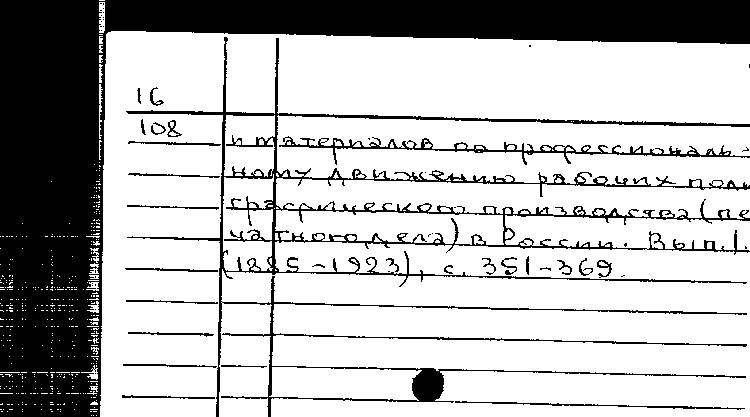 16
108
и материалов по профессиональ-
ному движению рабочих поли
графического производства (пе
чатного дела) в России. Вып. 1.
(1885-1923), с. 351-369.